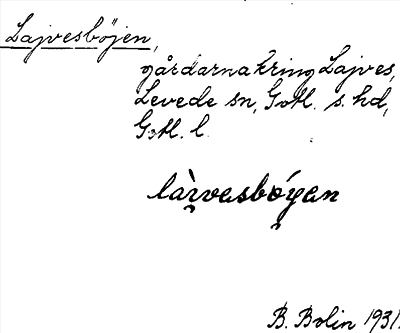 Lajvesböjen,
gårdarna kring Lajves,
Levede sn, Gotl. s. hd,
Gotl. l.
làrvesbóyen
B. Bolin 1931.